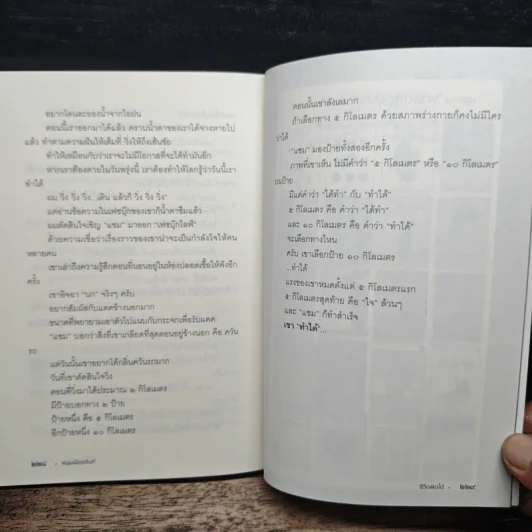 อยากโดนละอองน้ำจากไอฝน
ตอนนี้เราออกมาได้แล้ว คราบน้ำตาของเราได้จางหายไป
แล้ว ทำตามความฝันให้เต็มที่ วิ่งให้ถึงเส้นชัย
ทำให้เหมือนกับว่าเราจะไม่มีโอกาสที่จะได้ทำมันอีก
หากเราต้องตายในวันพรุ่งนี้ เราต้องทำให้โลกรู้ว่าวันนี้เรา
ทำได้
ผม วิ่ง วิ่ง วิ่ง...เดิน แล้วก็ วิ่ง วิ่ง วิ่ง"
แค่อ่านข้อความในเฟซบุ๊กของเขาก็น้ำตาซึมแล้ว
ผมตัดสินใจเชิญ "แซม" มาออก "เฟซบุ๊กไลฟ์"
ด้วยความเชื่อว่าเรื่องราวของเขาน่าจะเป็นกำลังใจให้คน
หลายคน
เขาเล่าถึงความรู้สึกตอนที่นอนอยู่ในห้องปลอดเชื้อให้ฟังอีก
ครั้ง
เขาอิจฉา "นก" จริงๆ ครับ
อยากสัมผัสกับแดดข้างนอกมาก
ขนาดที่พยายามเอาตัวไปแนบกับกระจกเพื่อรับแดด
"แซม" บอกว่าสิ่งที่เขาเกลียดที่สุดตอนอยู่ข้างนอก คือ ควัน
รถ
แต่วันนั้นเขาอยากได้กลิ่นควันรถมาก
วันที่เขาตัดสินใจวิ่ง
ตอนที่วิ่งมาได้ประมาณ ๒ กิโลเมตร
มีป้ายบอกทาง ๒ ป้าย
ป้ายหนึ่ง คือ ๕ กิโลเมตร
อีกป้ายหนึ่ง ๑๐ กิโลเมตร
๒๒๘ • หนุ่มเมืองจันท์
ตอนนั้นเขาลังเลมาก
ถ้าเลือกทาง ๕ กิโลเมตร ด้วยสภาพร่างกายก็คงไม่มีใคร
ว่าได้
"แซม" มองป้ายทั้งสองอีกครั้ง
ภาพที่เขาเห็น ไม่มีคำว่า "๕ กิโลเมตร" หรือ "๑๐ กิโลเมตร"
บนป้าย
มีแต่คำว่า "ได้ทำ" กับ "ทำได้"
๕ กิโลเมตร คือ คำว่า "ได้ทำ"
และ ๑๐ กิโลเมตร คือ คำว่า "ทำได้"
จะเลือกทางไหน
ครับ เขาเลือกป้าย ๑๐ กิโลเมตร
...ทำได้
แรงของเขาหมดตั้งแต่ ๕ กิโลเมตรแรก
๕ กิโลเมตรสุดท้าย คือ "ใจ" ล้วนๆ
และ "แซม" ก็ทำสำเร็จ
เขา "ทำได้"...
ชีวิตสดได้ • ๒๒๙